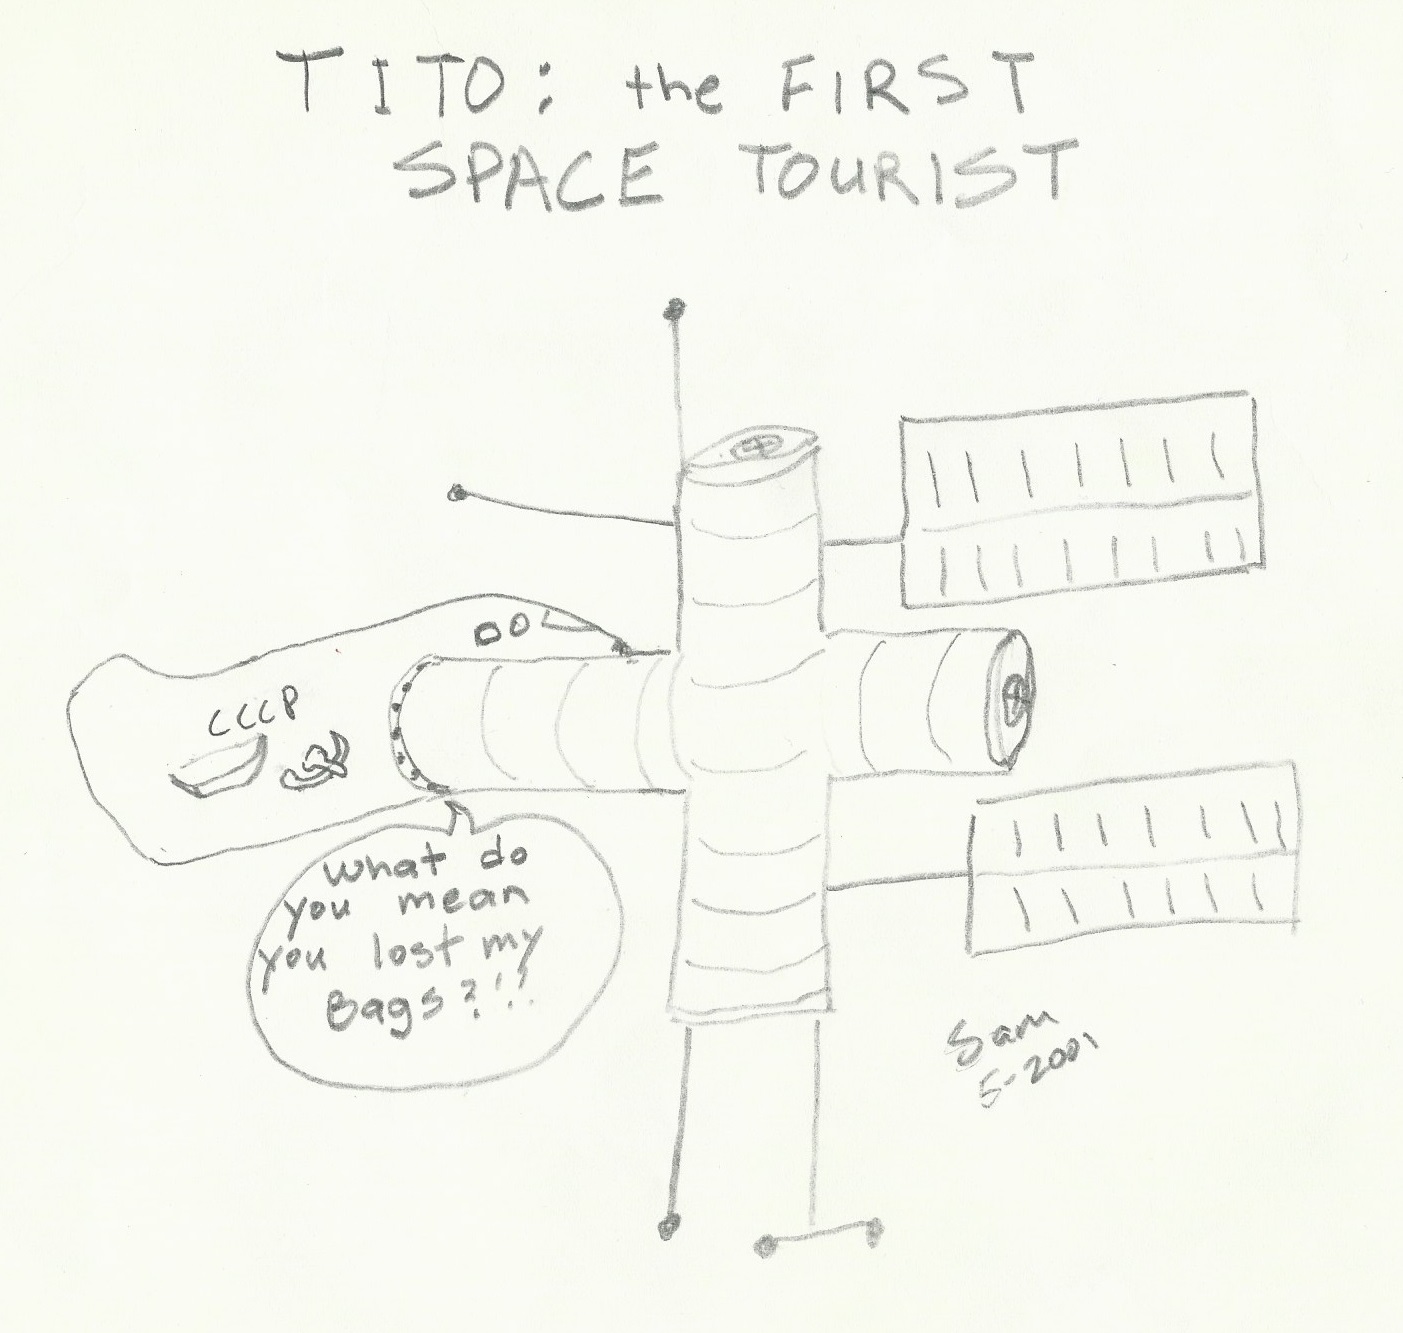 TITO: the FIRST
SPACE TOURIST
CCCP
What do
you mean
you lost my
Bags?!!
Sam
5-2001